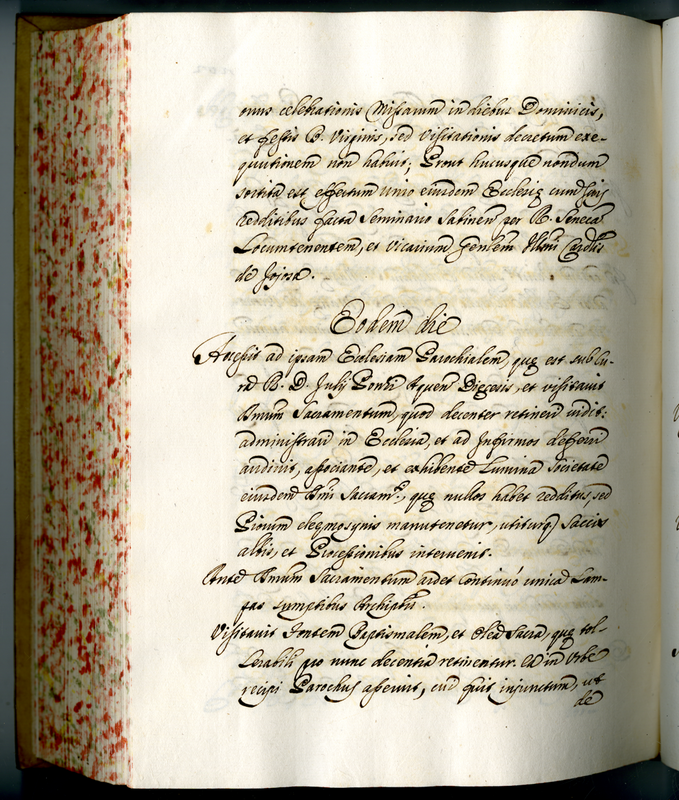 onus celebrationis Missarum in diebus Dominicis,
et festis B. Virginis, sed Visitationis decretum exe-
quutionem non habuit; Prout hucusque nondum
sortita est effectum unio eiusdem Ecclesię cum suis
redditibus facta Seminario Sabinen per R. Seneca
Locumtenentem, et Vicarium Gen̄lem Ill̄mi Card̄lis
de Joĵosa.
Eodem die
Accessit ad ipsam Ecclesiam Parochialem, quę est sub Cu-
ra R. D. Julij Dięcesis, et visitavit
Sm̄um Sacramentum, quod decenter retineri vidit:
administrari in Ecclesia, et ad Infirmos defferri
audivit, associante, et exhibente Lumina Societate
eiusdem Sm̄i Sacram.ti, quę nullos habet redditus, sed
Piorum eleęmosynis manutenetur, utiturq) Saccis
albis, et Processionibus intervenit.
Ante Sm̄um Sacramentum ardet continuó unica Lam-
pas sumptibus Archipb̄ri.
Visitavit Fontem Baptismalem, et Olea Sacra, quę tol-
lerabili pro nunc decentia retinentur. Ea in Urbe
recipi Parochus asseruit, cui fuit injunctum, ut
de